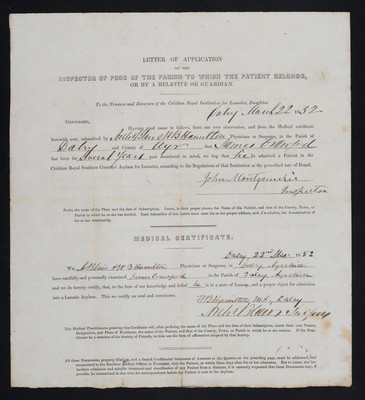 LETTER OF APPLICATION
OF THE
INSPECTOR OF POOR OF THE PARISH TO WHICH THE PATIENT BELONGS,
OR BY A RELATIVE OR GUARDIAN.
To the Trustees and Directors of the Crichton Royal Institution for Lunatics, Dumfries.
Dalry March 22 1852
GENTLEMEN,
HAVING good cause to believe, from our own observation, and from the Medical Certificate
herewith sent, subscribed by Archd Blair & W B Hamilton Physicians or Surgeons, in the Parish of
Dalry and County of Ayr that James Crawford
has been for Several Years past disordered in mind, we beg that he be admitted a Patient in the
Crichton Royal Southern Counties' Asylum for Lunatics, according to the Regulations of that Institution at the prescribed rate of Board.
John Montgomerie
Inspector
Prefix the name of the Place and the date of Subscription. Insert, in their proper places, the Name of the Patient, and that of the County, Town, or
Parish in which he or she has resided. Each Subscriber of this Letter must state his or her proper address, and, if a relative, the denomination of
his or her relationship.
MEDICAL CERTIFICATE.
Dalry, 22nd Mar 1852
We A Blair & W B Hamilton Physicians or Surgeons, in Dalry Ayrshire
have carefully and personally examined James Crawford in the Parish of Dalry Ayrshire
and do hereby certify, that, to the best of our knowledge and belief he is in a state of Lunacy, and a proper object for admission
into a Lunatic Asylum. This we certify on soul and conscience.
W B Hamilton M.D., Dalry
Archd Blair Surgeon
The Medical Practitioners granting this Certificate will, after prefixing the name of the Place and the date of their Subscription, insert their own Names,
Designation, and Place of Residence, the name of the Patient, and that of the County, Town, or Parish in which he or she resides. If the Practitioner
be a member of the Society of Friends, he may use the form of affirmation adopted by that Society.
All these Documents, properly filled up, and a Sealed Confidential Statement of Answers to the Queries on the preceding page, must be